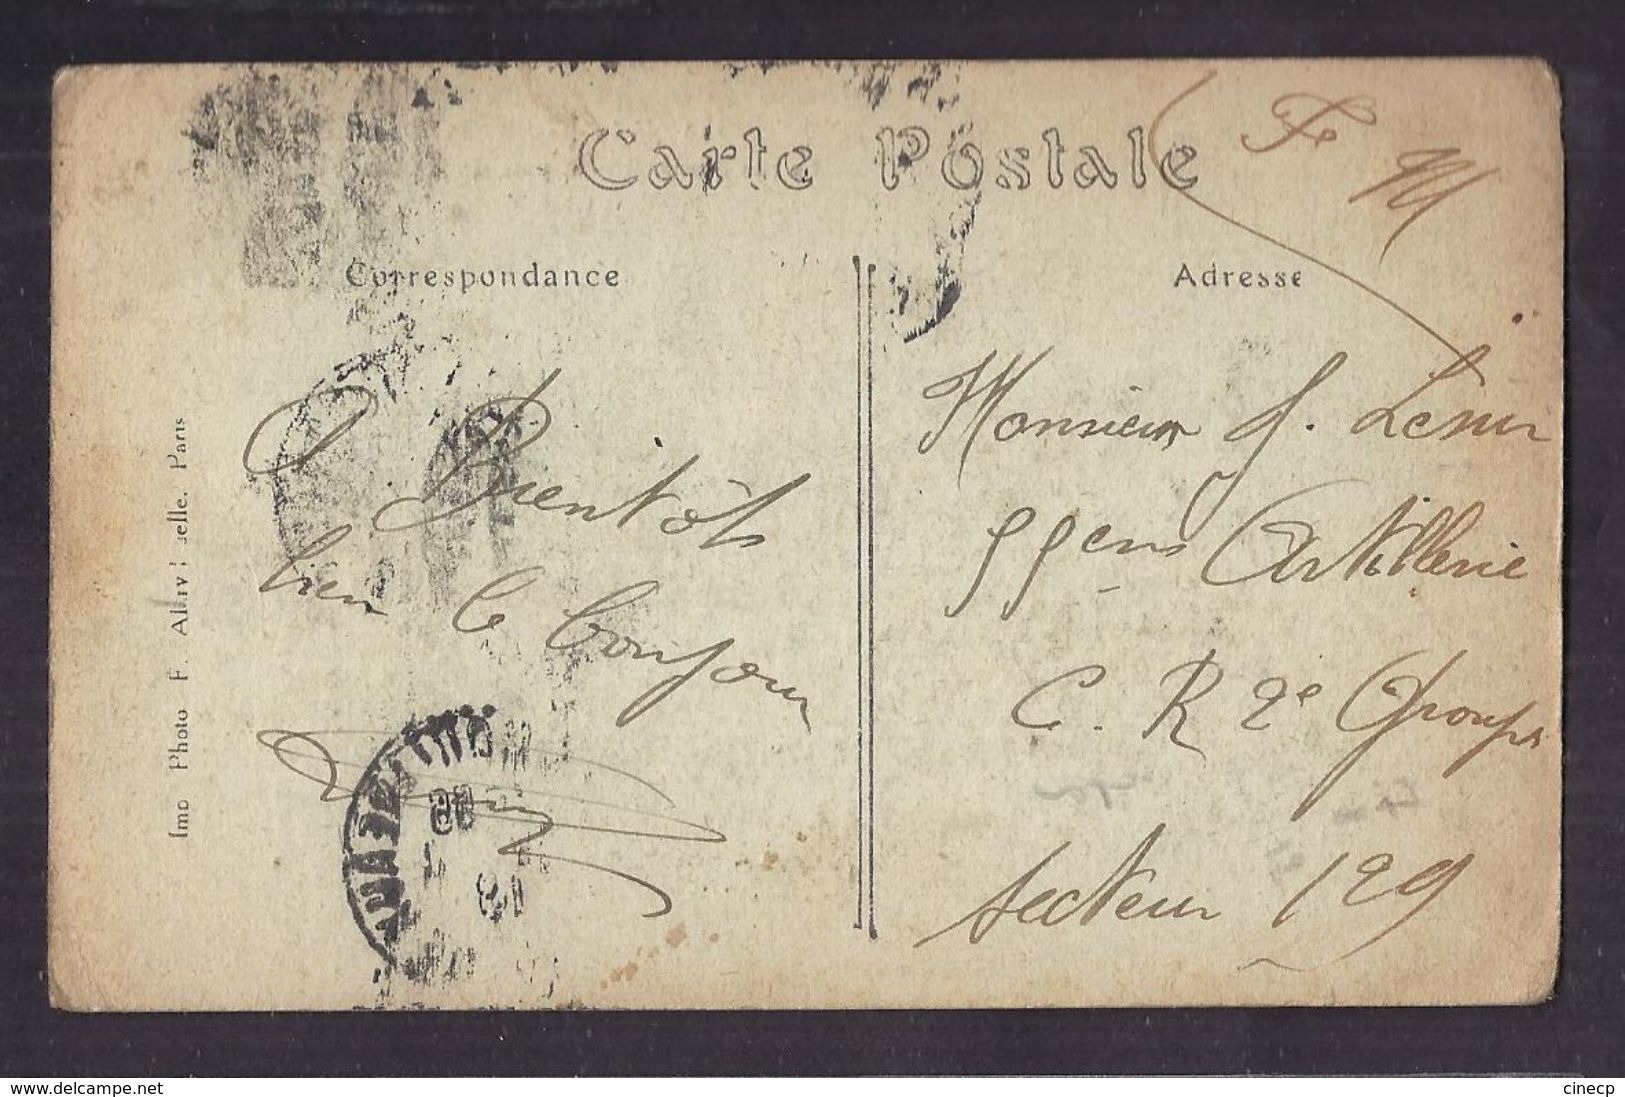 Carte Postale
F M
Correspondance
Adresse
A Bientôt
bien le bonjour
Monsieur J.
Artillerie
C. R 2e Groupe
Secteur 129
Imp Photo Paris
www.delcampe.net
cinecp